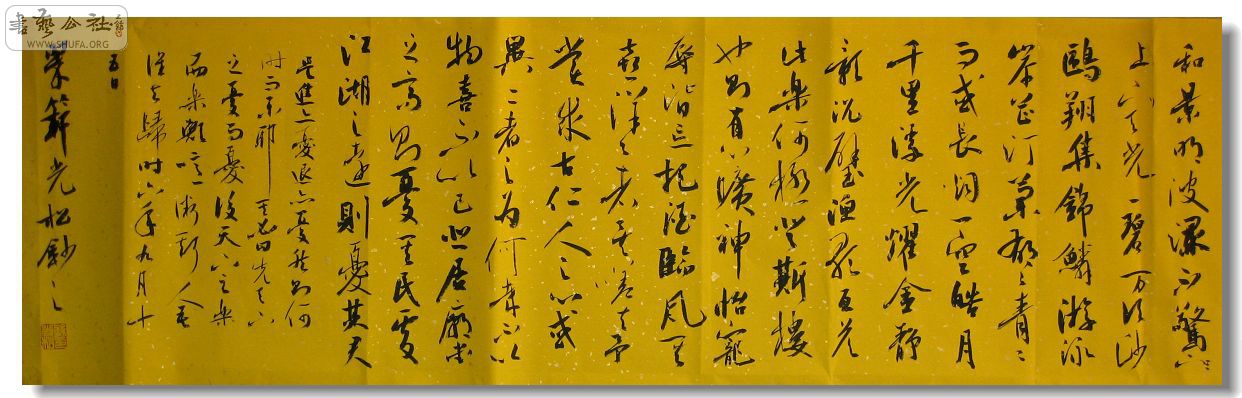 和景明波瀾不驚
上下天光一碧万頃沙
鷗翔集錦鱗游泳
岸芷汀蘭郁々青々
而或長烟一空皓月
千里浮光耀金靜
影沉璧漁歌互答
此樂何極登斯樓
也則有心曠神怡寵
辱皆忘把酒臨風其
喜洋々者矣嗟夫予
嘗求古仁人之心或
異二者之為何哉不以
物喜不以己悲居廟堂
之高則憂其民處
江湖之遠則憂其君
是進亦憂退亦憂然則何
時而樂耶其必曰先天下
之憂而憂後天下之樂
而樂歟噫微斯人吾
誰與歸時六年九月十
五日
光松鈔之
書藝公社
WWW.SHUFA.ORG